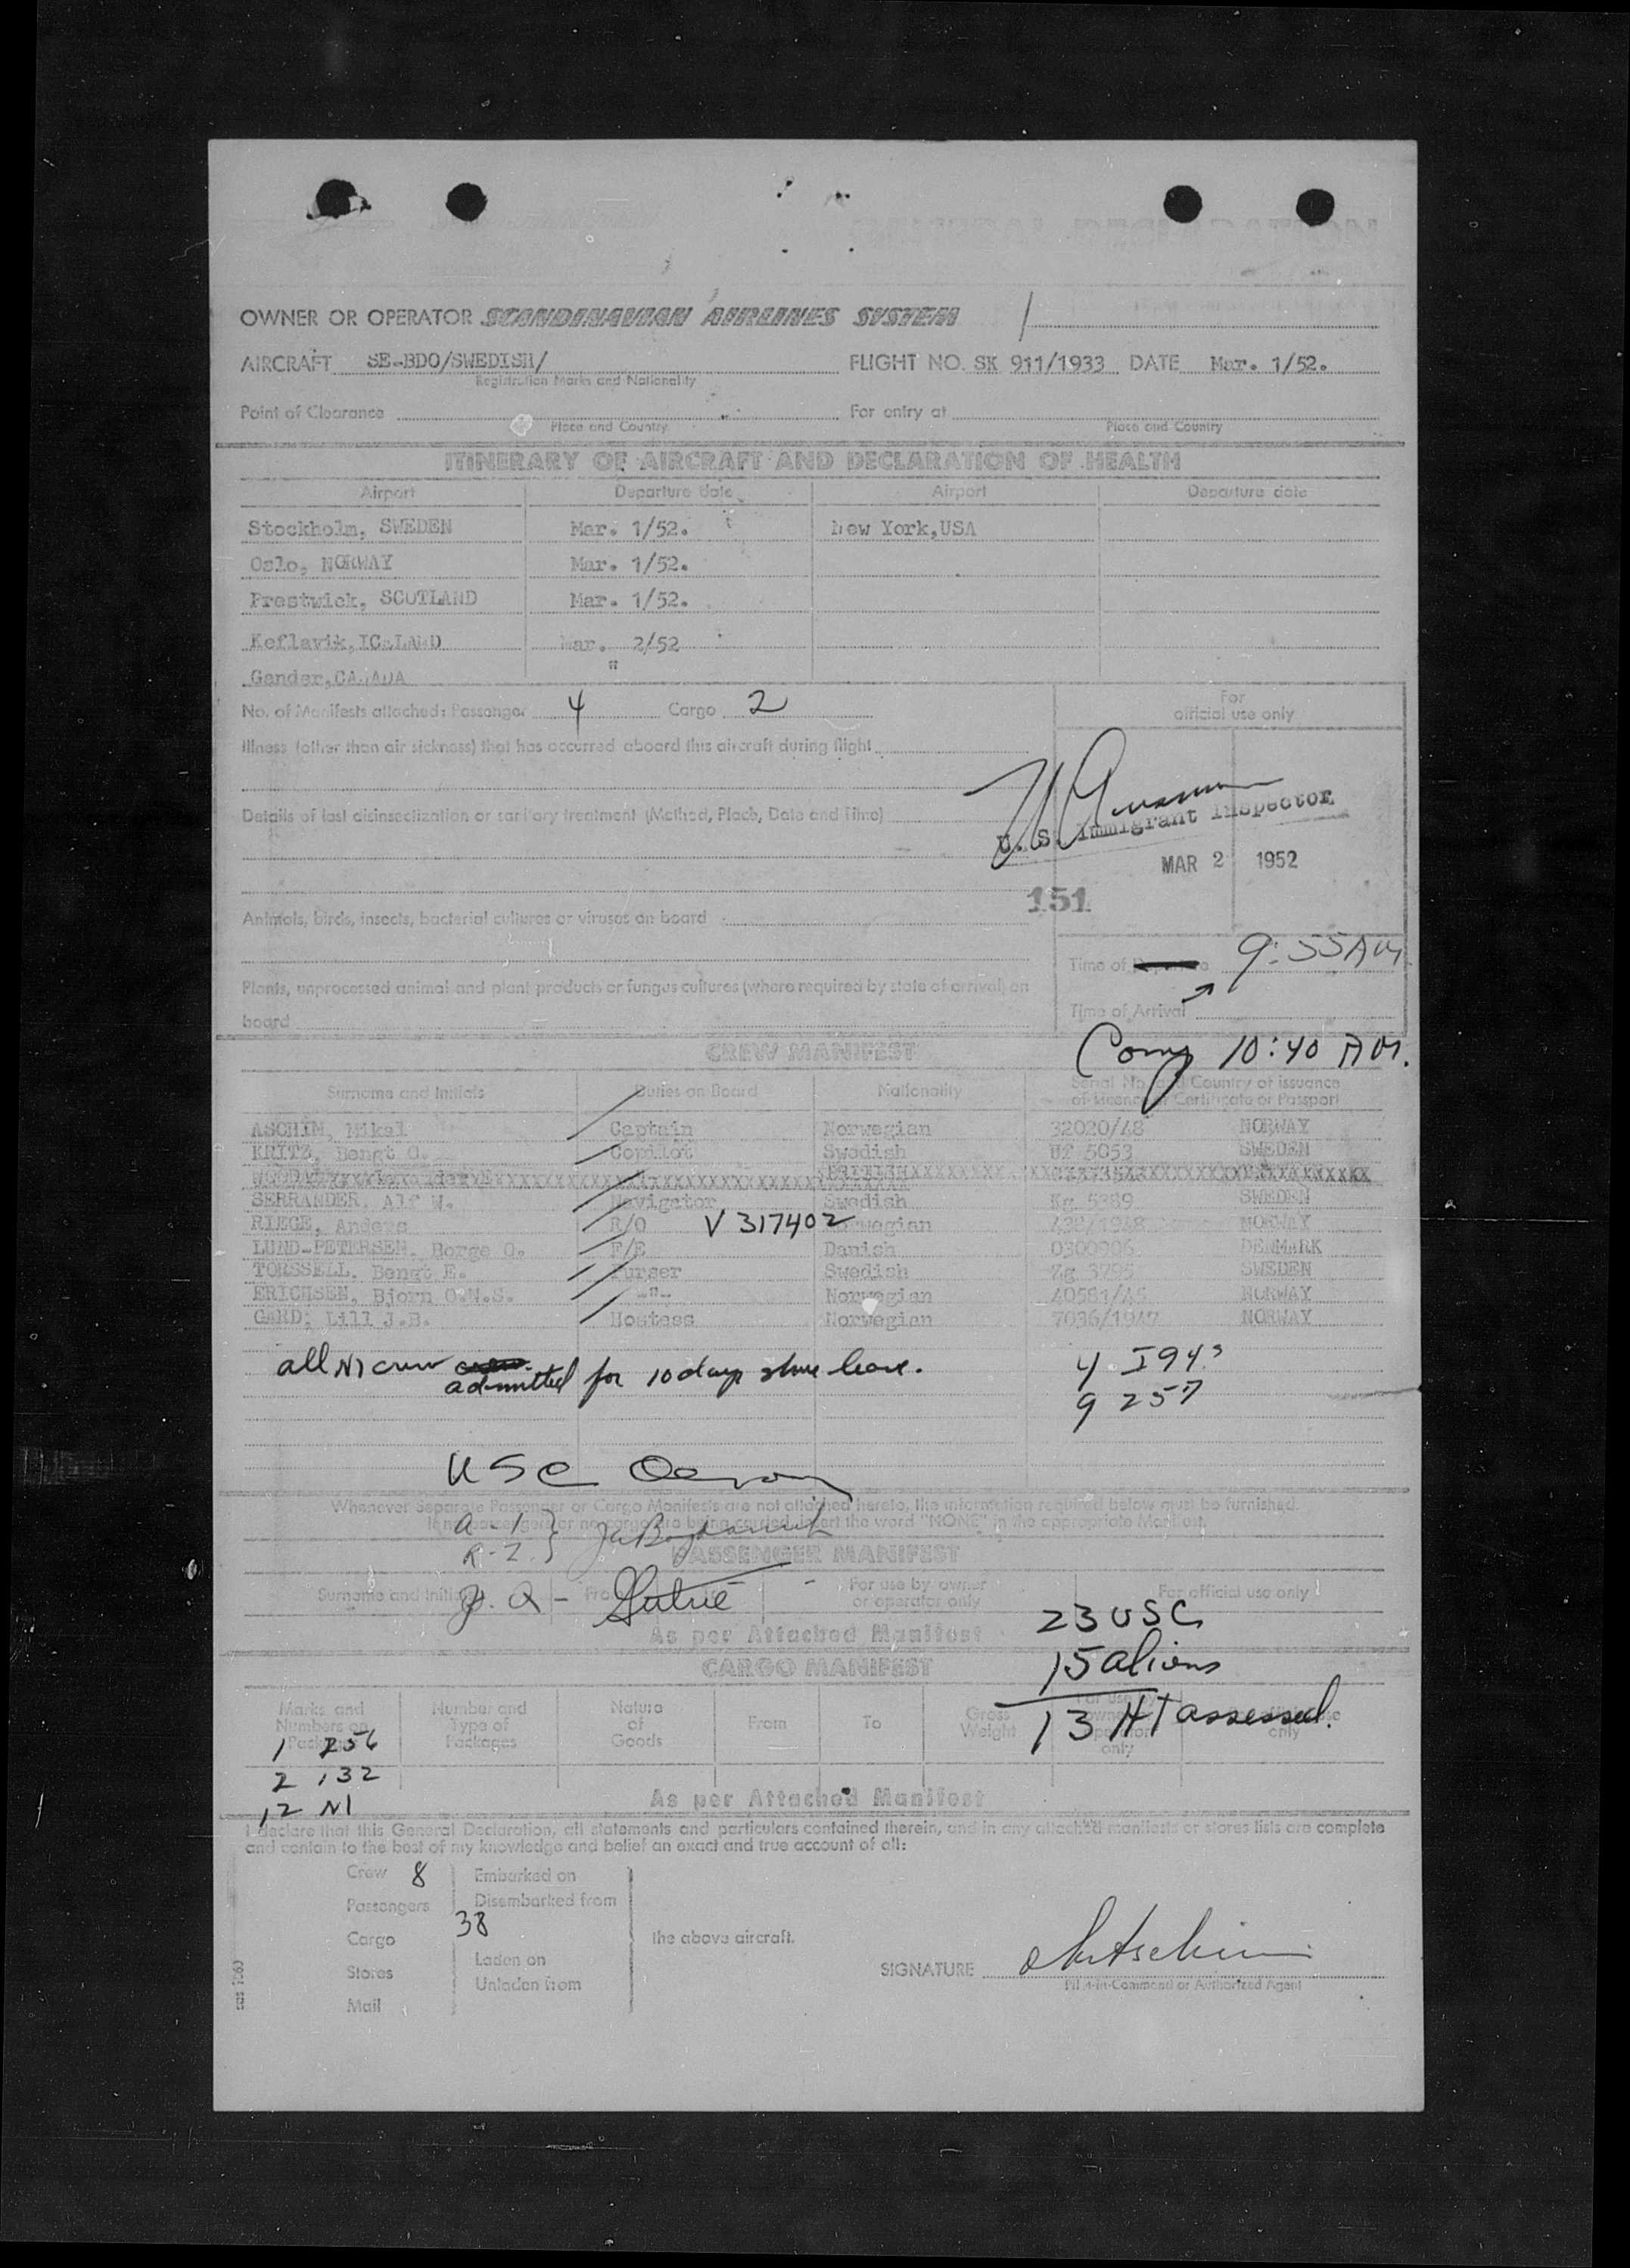 OWNER OR OPERATOR SCANDINAVIAN AIRLINES SYSTEM
AIRCRAFT SE-BDO/SWEDISH/ FLIGHT NO. SK 911/1933 DATE Mar. 1/52.
Registration Marks and Nationality
Point of Clearance For entry at
Place and Country Place and Country
ITINERARY OF AIRCRAFT AND DECLARATION OF HEALTH
Airport Departure date Airport Departure date
Stockholm, SWEDEN Mar. 1/52. New York,USA
Oslo, NORWAY Mar. 1/52.
Prestwick, SCOTLAND Mar. 1/52.
Keflavik,ICELAND Mar. 2/52
Gander,CANADA "
No. of Manifests attached: Passenger 4 Cargo 2
For
official use only
Illness (other than air sickness) that has occurred aboard this aircraft during flight
Details of last disinsectization or sanitary treatment (Method, Place, Date and Time)
U. S. Immigrant Inspector
MAR 2 1952
151
Animals, birds, insects, bacterial cultures or viruses on board
Time of Departure 9:55 AM
Plants, unprocessed animal and plant products or fungus cultures (where required by state of arrival) on
board
Time of Arrival
10:40 AM.
CREW MANIFEST
Surname and Initials Duties on Board Nationality Serial No. and Country of issuance
of Licence, Certificate or Passport
ASCHIM, Mikal Captain Norwegian 32020/48 NORWAY
KRITZ, Bengt O. Copilot Swedish UF 5053 SWEDEN
SERRANDER, Alf W. Navigator Swedish Kg 5389 SWEDEN
RIEGE, Anders R/O V 317402 Norwegian 432/1948 NORWAY
LUND-PETERSEN, Borge O. F/E Danish 0300906 DENMARK
TORSSELL, Bengt E. Purser Swedish Kg 3795 SWEDEN
ERICHSEN, Bjorn O.N.S. -"- Norwegian 40581/45 NORWAY
GARD, Lill J.B. Hostess Norwegian 7036/1947 NORWAY
all NI crew admitted for 10 days shore leave.
4 I94s
9 257
USC
Whenever Separate Passenger or Cargo Manifests are not attached hereto, the information required below must be furnished.
If no passengers or no cargo are being carried, insert the word "NONE" in the appropriate Manifest.
a - 1
R - 2
PASSENGER MANIFEST
Surname and Initials For use by owner
or operator only For official use only
23 USC
As per Attached Manifest
15 aliens
CARGO MANIFEST
13 HT assessed.
Marks and
Numbers on
Packages Number and
Type of
Packages Nature
of
Goods From To Gross
Weight For use by
owner or
operator
only
1 256
2 132
12 NI
As per Attached Manifest
I declare that this General Declaration, all statements and particulars contained therein, and in any attached manifests or stores lists are complete
and contain to the best of my knowledge and belief an exact and true account of all:
Crew 8 Embarked on
Passengers Disembarked from
38
Cargo the above aircraft.
Laden on
Stores
Unladen from
Mail
SIGNATURE
Pilot-in-Command or Authorized Agent